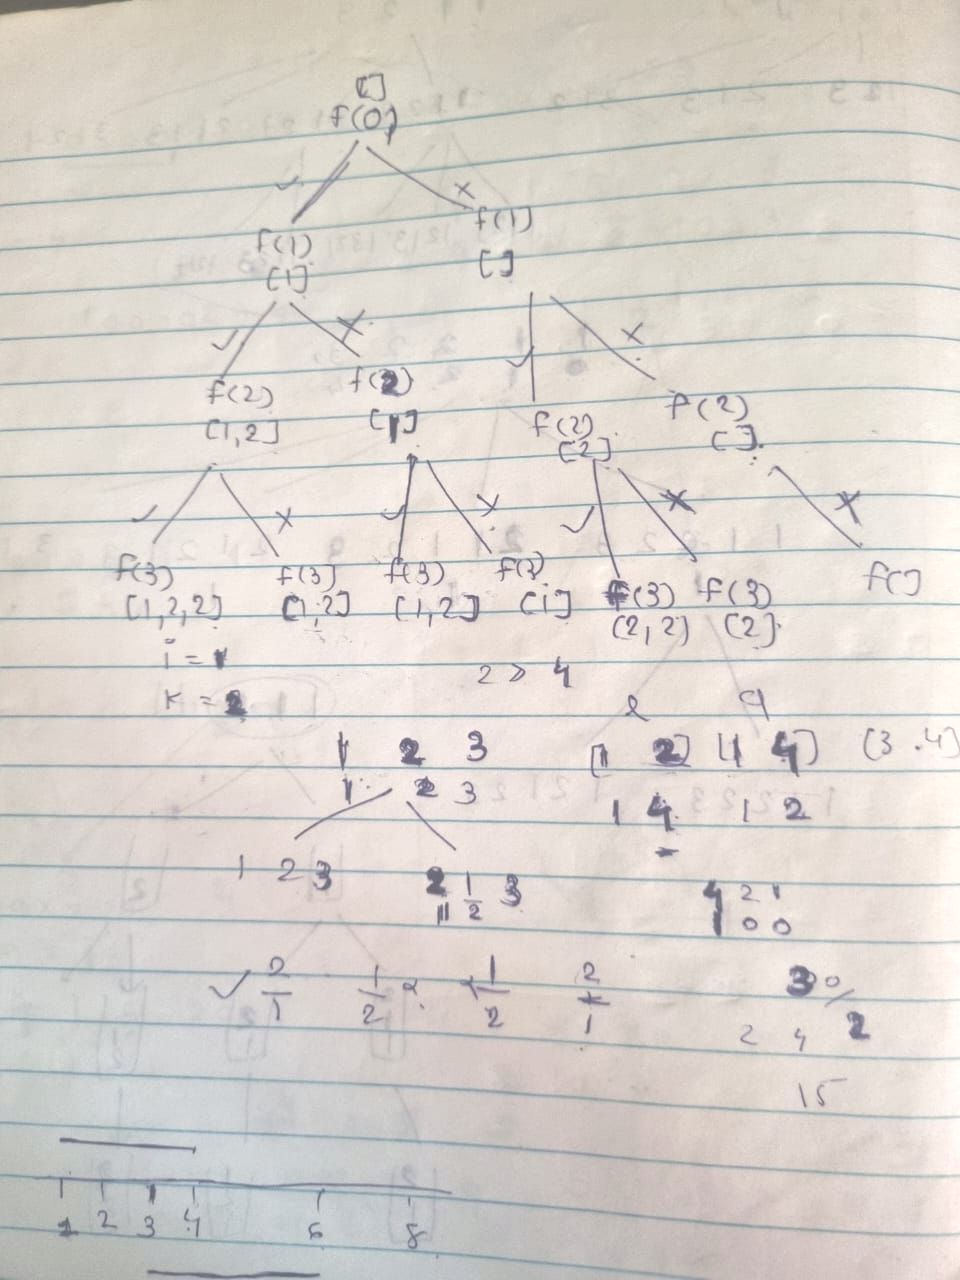 []
f(0)
✓ ×
f(1) f(1)
[1] []
✓ × ✓ ×
f(2) f(2) f(2) f(2)
[1,2] [1] [2] [].
✓ × ✓ × ✓ × ×
f(3) f(3) f(3) f(3) f(3) f(3) f()
[1,2,2] [1,2] [1,2] [1] (2,2) [2]
i = 1
K = 2
2 > 4
1 2 3 [1 2] [1 4] (3.4]
1 2 3 1 4 1 2
1 2 3 2 1/2 3
2 1
0 0
✓ 2/1 1/2 1/2 2/1
30/2
2 4
15
1 2 3 4 6 8